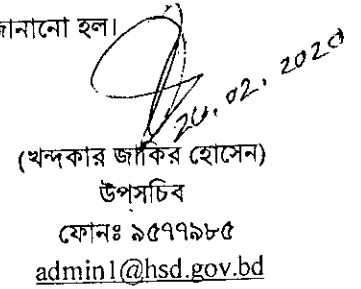 জানানো হল।
(খন্দকার জাকির হোসেন)
উপসচিব
ফোনঃ ৯৫৭৭৯৮৫
admin1@hsd.gov.bd